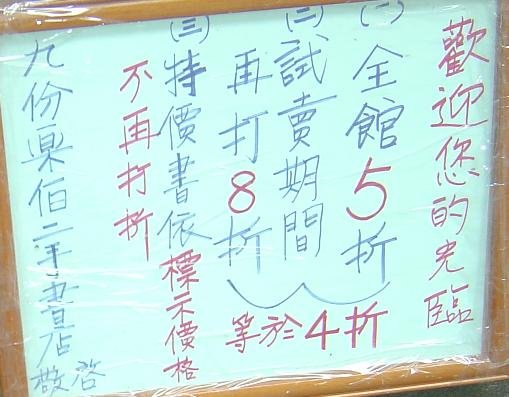 歡迎您的光臨
(一)全館5折
(二)試賣期間
再打8折
等於4折
(三)特價書依標示價格
不再打折
九份樂伯二手書店
敬啓